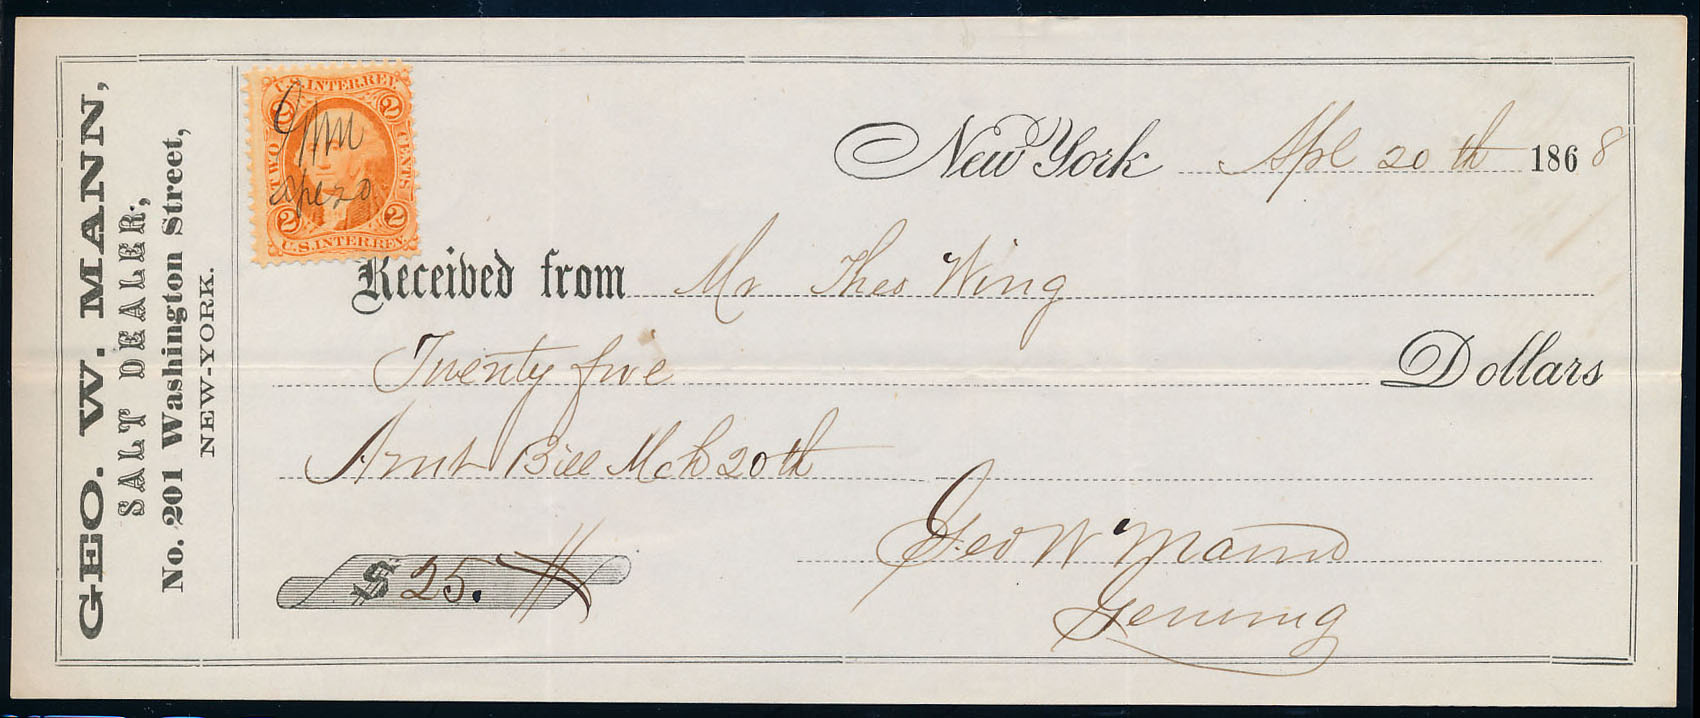 GEO. W. MANN,
SALT DEALER,
No. 201 Washington Street,
NEW-YORK.
U.S. INTER. REV.
2 2
TWO CENTS
Ape 20
2 2
U.S. INTER. REV.
New York Apl 20th 1868
Received from Mr Theo Wing
Twenty five Dollars
Amt Bill Mch 20th
$ 25.
Geo W Mann